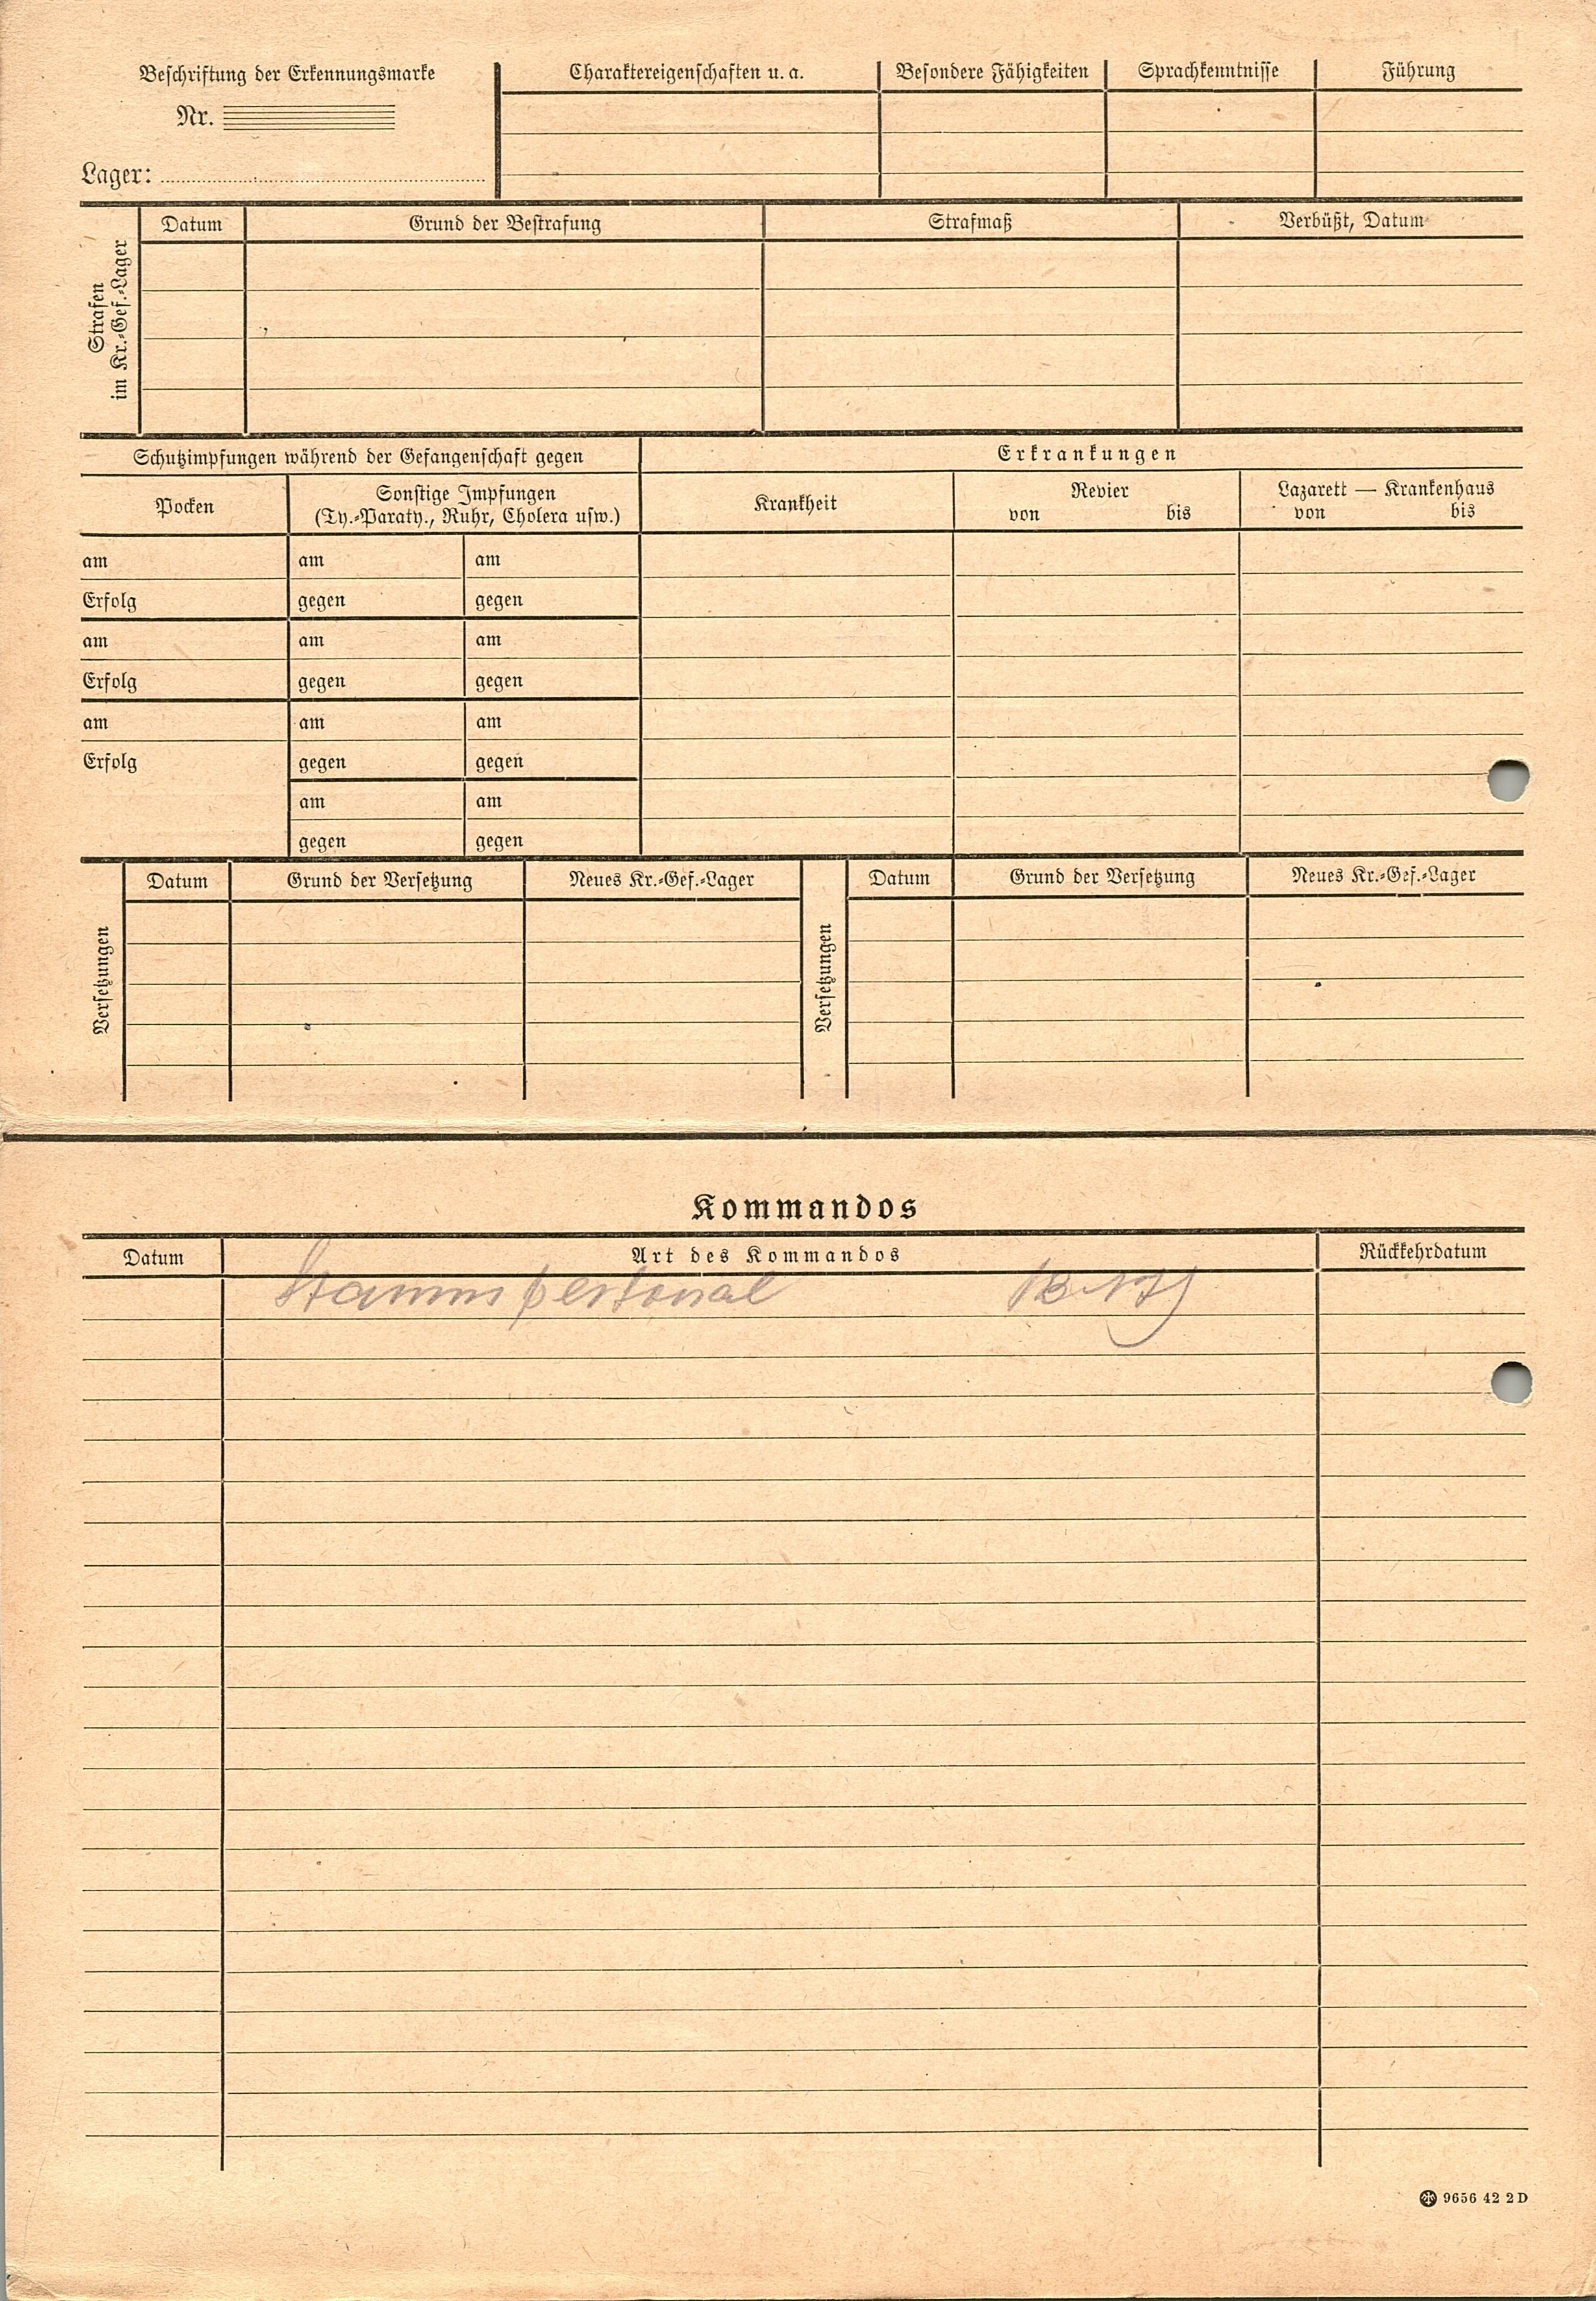 Beschriftung der Erkennungsmarke
Nr.
Lager:
Charaktereigenschaften u. a.
Besondere Fähigkeiten
Sprachkenntnisse
Führung
Strafen
im Kr.-Gef.-Lager
Datum
Grund der Bestrafung
Strafmaß
Verbüßt, Datum
Schutzimpfungen während der Gefangenschaft gegen
Erkrankungen
Pocken
Sonstige Impfungen
(Ty.-Paraty., Ruhr, Cholera usw.)
Krankheit
Revier
von bis
Lazarett — Krankenhaus
von bis
am am am
Erfolg gegen gegen
am am am
Erfolg gegen gegen
am am am
Erfolg gegen gegen
am am
gegen gegen
Versetzungen
Datum
Grund der Versetzung
Neues Kr.-Gef.-Lager
Versetzungen
Datum
Grund der Versetzung
Neues Kr.-Gef.-Lager
Kommandos
Datum
Art des Kommandos
Rückkehrdatum
Stammpersonal
9656 42 2 D